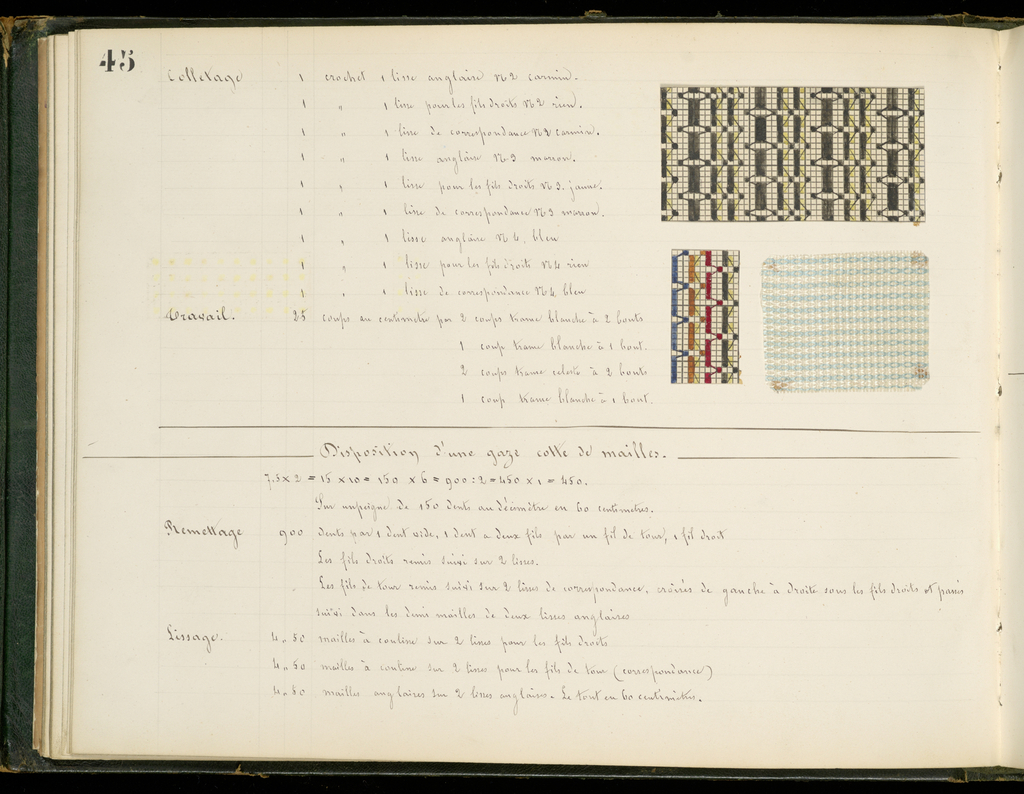 45
Colletage 1 crochet 1 lisse anglaise N2 carmin.
1 " 1 lisse pour les fils droits N2 rien.
1 " 1 lisse de correspondance N2 carmin.
1 " 1 lisse anglaise N3 marron.
1 " 1 lisse pour les fils droits N3. jaune.
1 " 1 lisse de correspondance N3 marron.
1 " 1 lisse anglaise N4. bleu
1 " 1 lisse pour les fils droits N4 rien
1 " 1 lisse de correspondance N4 bleu
Travail. 25 coups au centimètre par 2 coups trame blanche à 2 bouts
1 coup trame blanche à 1 bout.
2 coups trame celeste à 2 bouts
1 coup trame blanche à 1 bout.
Disposition d'une gaze cotte de mailles.
7.5 x 2 = 15 x 10 = 150 x 6 = 900 : 2 = 450 x 1 = 450.
Sur un peigne de 150 dents au décimètre en 60 centimetres.
Remettage 900 dents par 1 dent vide, 1 dent a deux fils par un fil de tour, 1 fil droit
Les fils droits remis suivi sur 2 lisses.
Les fils de tour remis suivi sur 2 lisses de correspondance, croisés de gauche à droite sous les fils droits et passés
suivi dans les demi mailles de deux lisses anglaises
Lissage. 4.50 mailles à coulisse sur 2 lisses pour les fils droits
4.50 mailles à coulisse sur 2 lisses pour les fils de tour (correspondance)
4.50 mailles anglaises sur 2 lisses anglaises. Le tout en 60 centimètres.